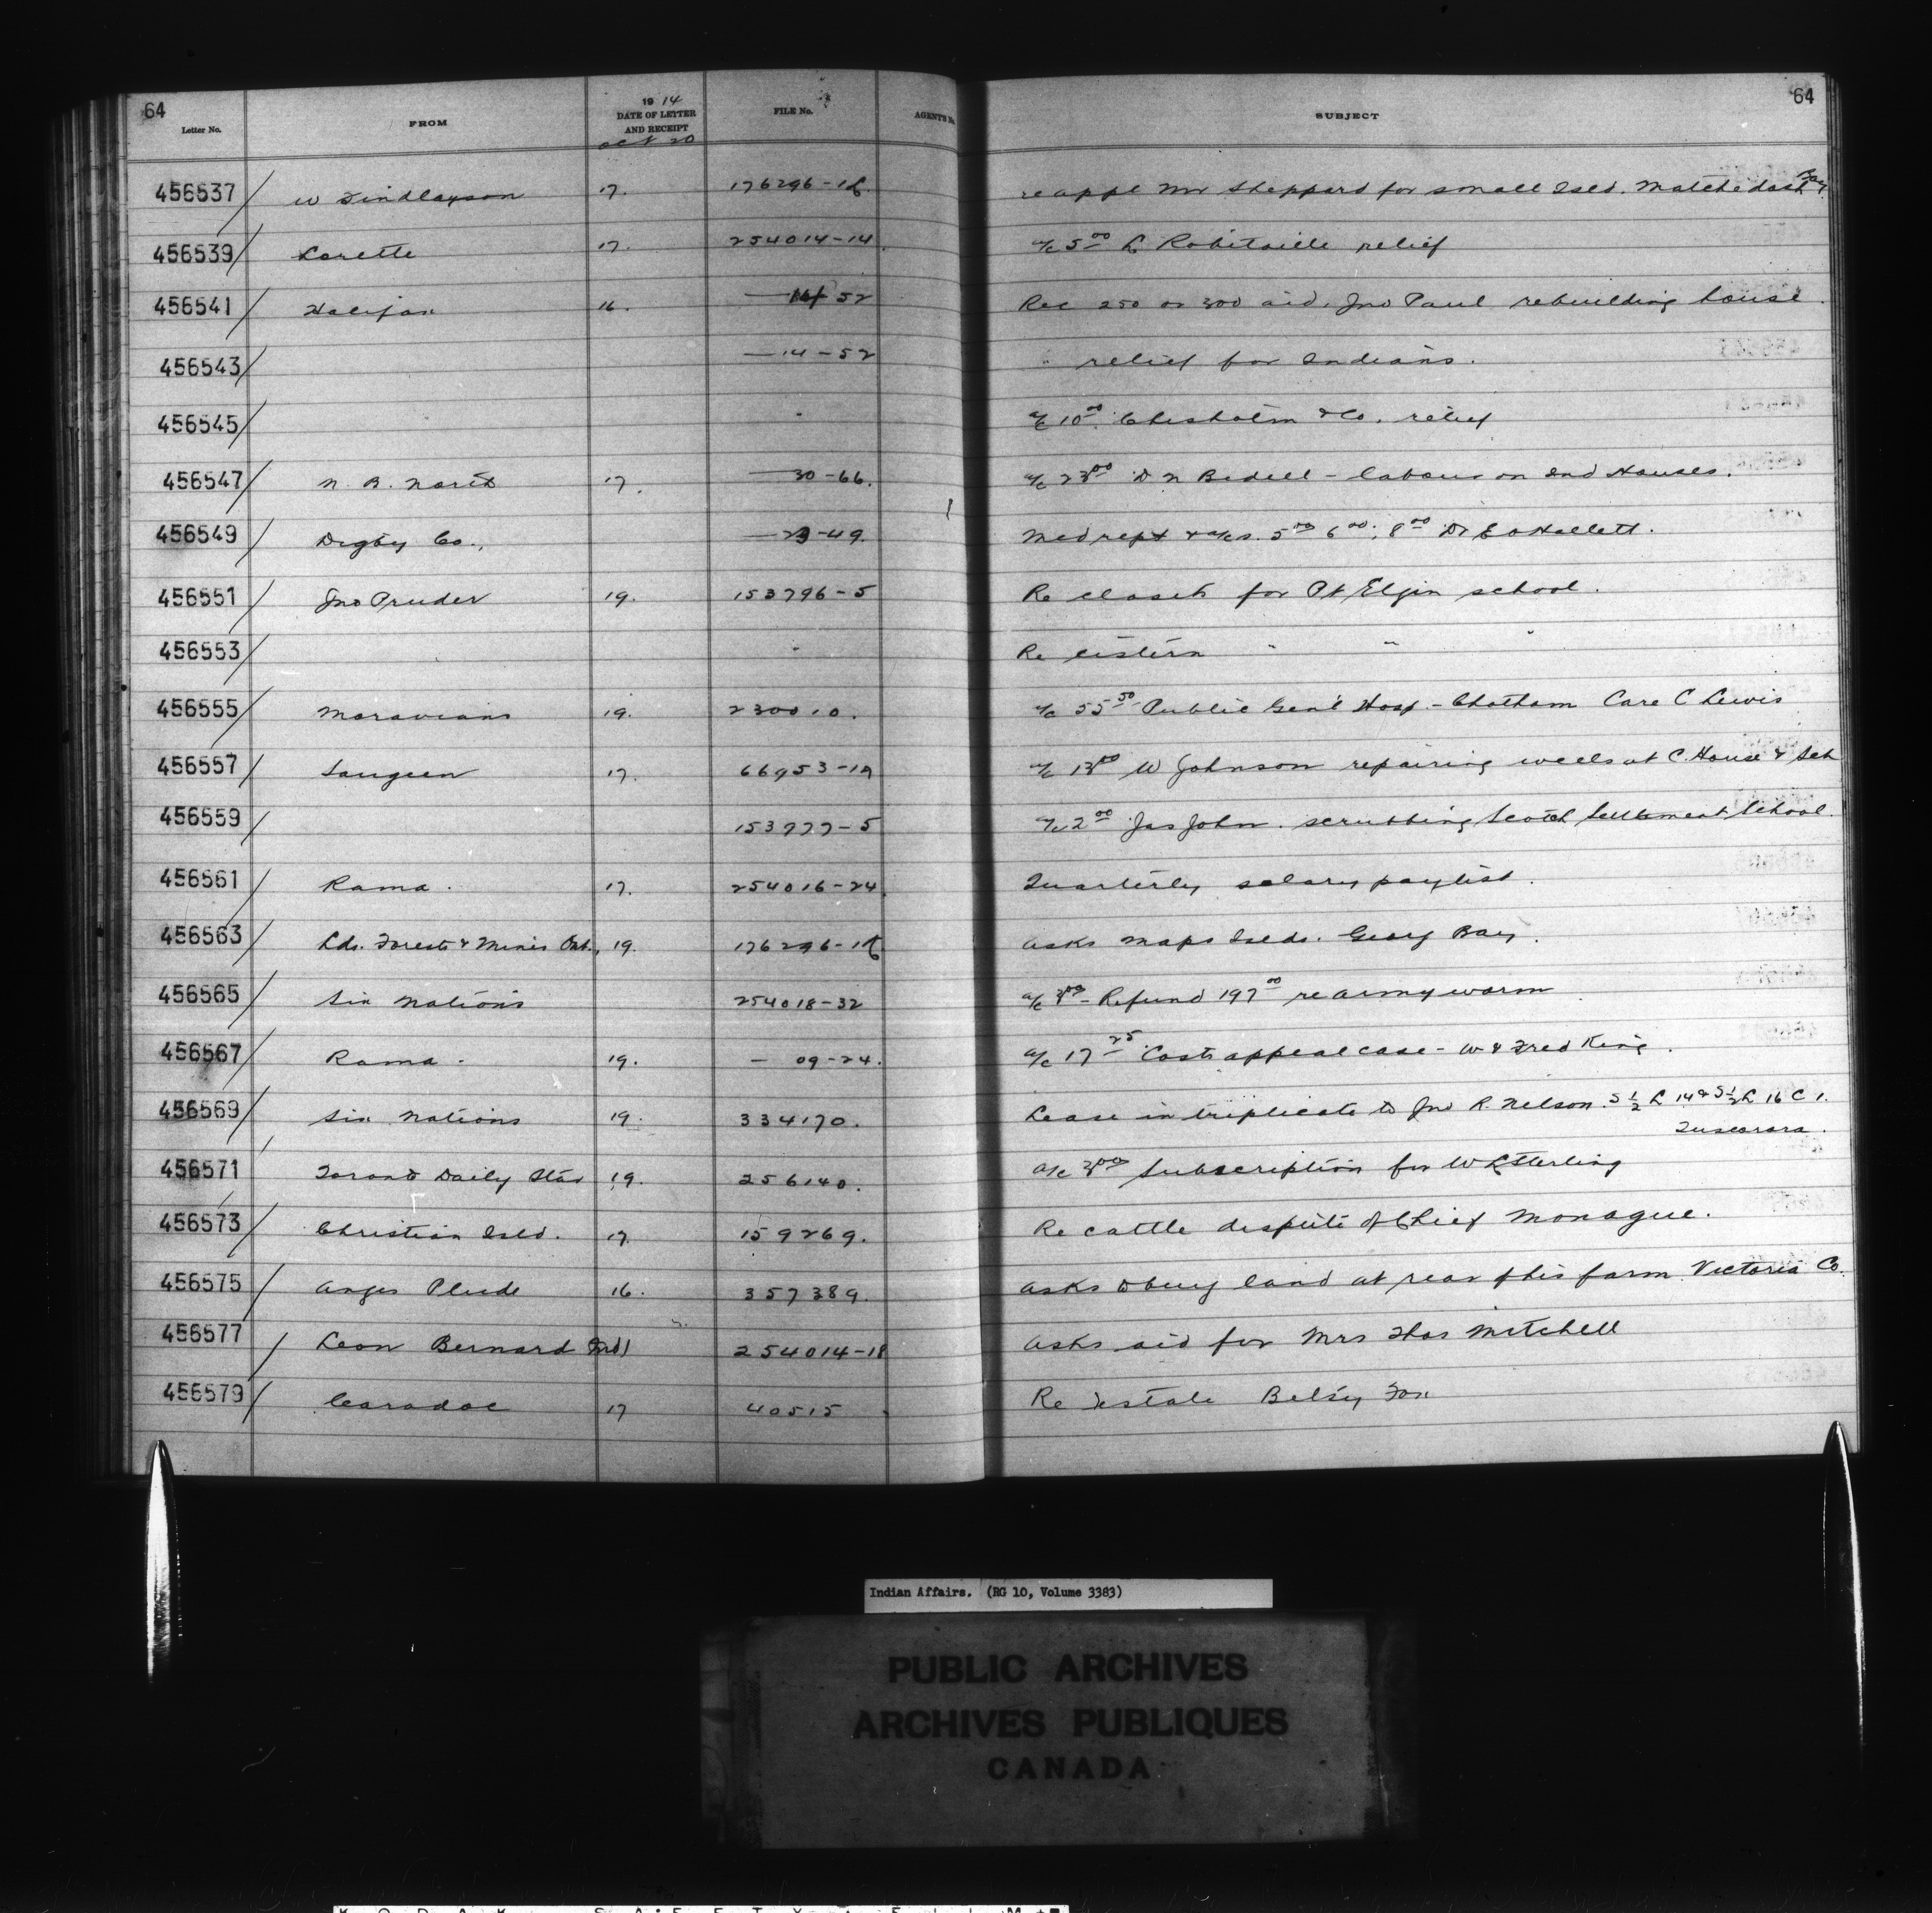 64
64
Letter No.
FROM
19 14
DATE OF LETTER
AND RECEIPT
Oct 20
FILE No.
AGENT'S No.
SUBJECT
456537 W Findlayson 17. 176296-1 re appl Mr Sheppard for small Isld. Matchedash Bay
456539 Lorette 17. 254014-14 a/c 5.00 L Robitaille relief
456541 Halifax 16. — 14-52 Rec 250 or 300 aid, Jno Paul rebuilding house.
456543 — 14-52 " relief for Indians.
456545 " a/c 10.00 Chisholm & Co. relief
456547 N. B. North 17. — 30-66. a/c 23.00 D N Bedell - labour on Ind Houses.
456549 Digby Co., — 23-49. Med rept & a/cs. 5.00 6.00, 8.00 Dr E O Hallett.
456551 Jno Pruder 19. 153796-5 Re closets for Pt Elgin school.
456553 " Re cistern " " "
456555 Moravians 19. 230010. a/c 55.50 Public Gen'l Hosp - Chatham Care C Lewis
456557 Saugeen 17. 66953-1 a/c 13.00 W Johnson repairing wells at C. House & Sch
456559 153777-5 a/c 2.00 Jas John. scrubbing Scotch Settlement School.
456561 Rama. 17. 254016-24 Quarterly salary paylist.
456563 Lds. Forests & Mines Ont., 19. 176296-1 asks maps Islds. Georg Bay.
456565 Six Nations 254018-32 a/c - Refund 197.00 re army worm
456567 Rama. 19. — 09-24. a/c 17.25 Costs appeal case - W & Fred King.
456569 Six Nations 19. 334170. Lease in triplicate to Jno R. Nelson. S 1/2 L 14 & S 1/2 L 16 C 1.
Tuscarora.
456571 Toronto Daily Star 19. 256140. a/c 3.00 Subscription for W L Sterling
456573 Christian Isld. 17. 159269. Re cattle dispute of Chief Monague.
456575 Anges Plude 16. 357389. asks to buy land at rear of his farm Victoria Co.
456577 Leon Bernard (Ind) 254014-18 asks aid for Mrs Thos Mitchell
456579 Caradoc 17 40515 Re estate Betsy Fox
Indian Affairs. (RG 10, Volume 3383)
PUBLIC ARCHIVES
ARCHIVES PUBLIQUES
CANADA
KODAK SAFETY FILM